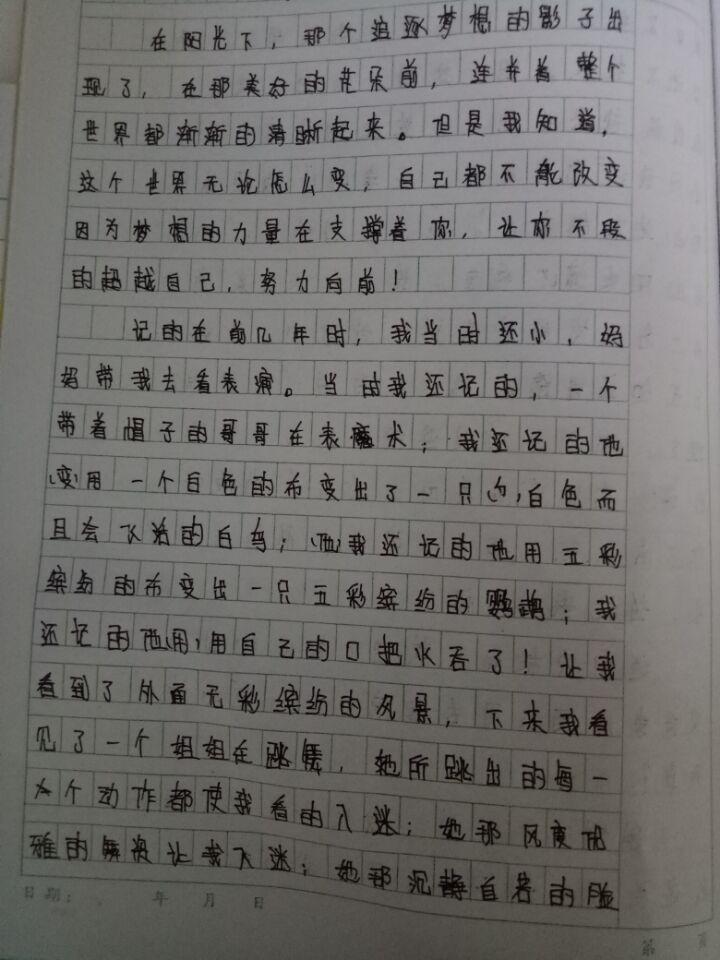 在阳光下，那个追逐梦想的影子出
现了，在那美好的花朵前，连并着整个
世界都渐渐的清晰起来。但是我知道，
这个世界无论怎么变，自己都不能改变
因为梦想的力量在支撑着你，让你不段
的超越自己，努力向前！
记的在前几年时，我当时还小，妈
妈带我去看表演。当时我还记的，一个
带着帽子的哥哥在表魔术；我还记的他
(变)用一个白色的布变出了一只(白)白色而
且会飞的白鸟；(他)我还记的他用五彩
缤纷的布变出一只五彩缤纷的鹦鹉；我
还记的他(用)用自己的口把火吞了！让我
看到了外面无彩缤纷的风景，下来我看
见了一个姐姐在跳舞，她所跳出的每一
个动作都使我看的入迷；她那风度
雅的舞姿让我入迷；她那沉静自若的脸
日期： 年 月 日
第 页